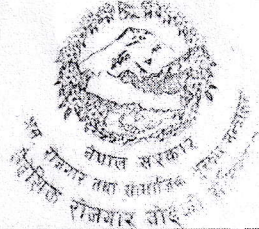 नेपाल सरकार
श्रम, रोजगार तथा सामाजिक सुरक्षा मन्त्रालय
वैदेशिक रोजगार बोर्ड